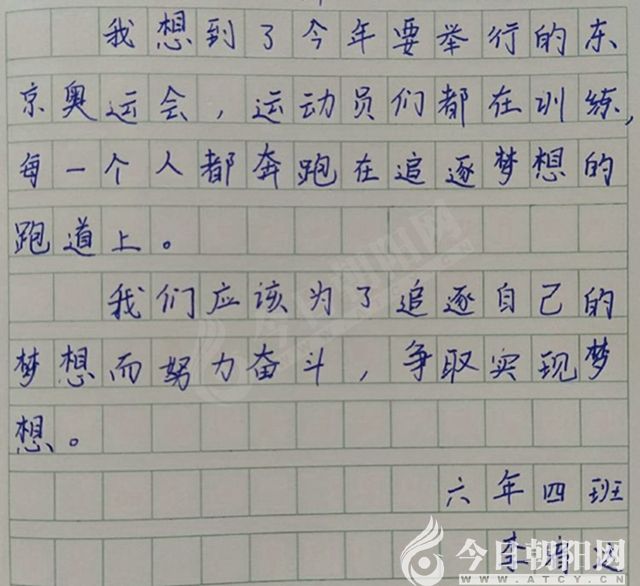 我想到了今年要举行的东
京奥运会，运动员们都在训练，
每一个人都奔跑在追逐梦想的
跑道上。
我们应该为了追逐自己的
梦想而努力奋斗，争取实现梦
想。
六年四班
今日朝阳网
WWW.ATCY.CN